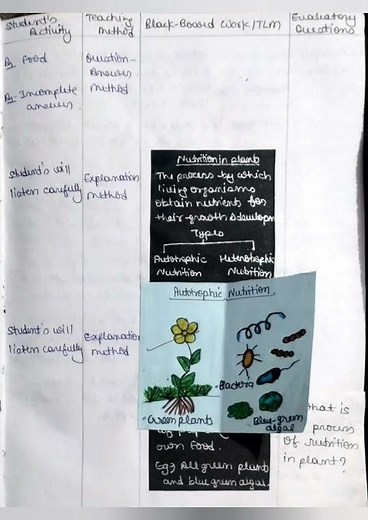 Student's Activity
Teaching Method
Black-Board Work/TLM
Evaluatory Questions
Food
Incomplete answer
Question-Answer Method
Student's will
listen carefully
Explanation
method
Nutrition in plants
The process by which
living organisms
obtain nutrients for
their growth & developm
Types
Autotrophic Nutrition
Heterotrophic Nutrition
Autotrophic Nutrition
Bacteria
Green plants
Blue-green
algae
Student's will
listen carefully
Explanation
method
own food.
Eg:- All green plants
and blue green algae.
what is
process
of nutrition
in plant?